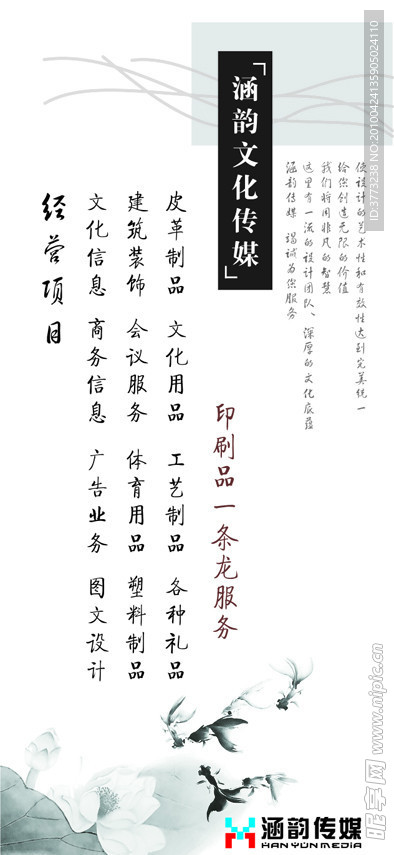 「涵韵文化传媒」
使设计的艺术性和有效性达到完美统一
给你创造无限的价值
我们将用非凡的智慧
这里有一流的设计团队、深厚的文化底蕴
涵韵传媒 竭诚为您服务
印刷品一条龙服务
皮革制品 文化用品 工艺制品 各种礼品
建筑装饰 会议服务 体育用品 塑料制品
文化信息 商务信息 广告业务 图文设计
经营项目
涵韵传媒
HAN YUN MEDIA
ID:3773238 NO:20100424135905024110
昵享网 www.nipic.cn